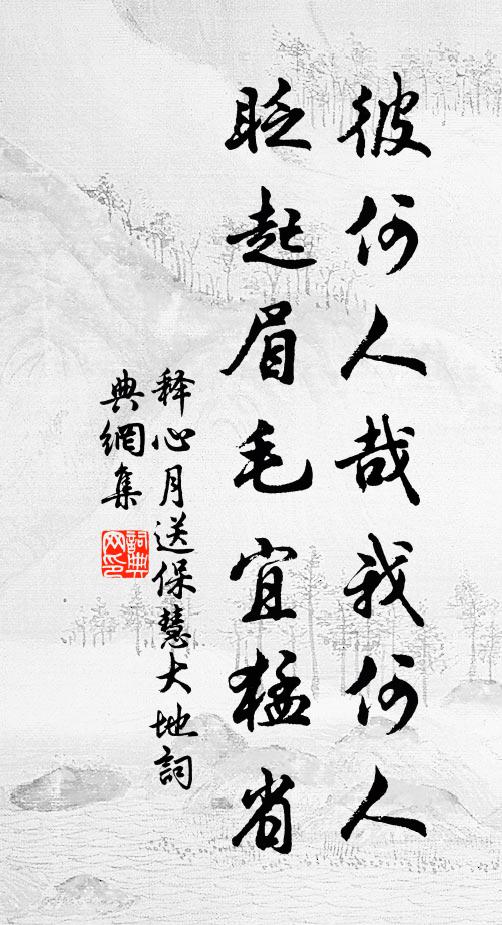 彼何人哉我何人
眨起眉毛宜猛省
释心月送保慧大地詞
典網集
詞典
网印